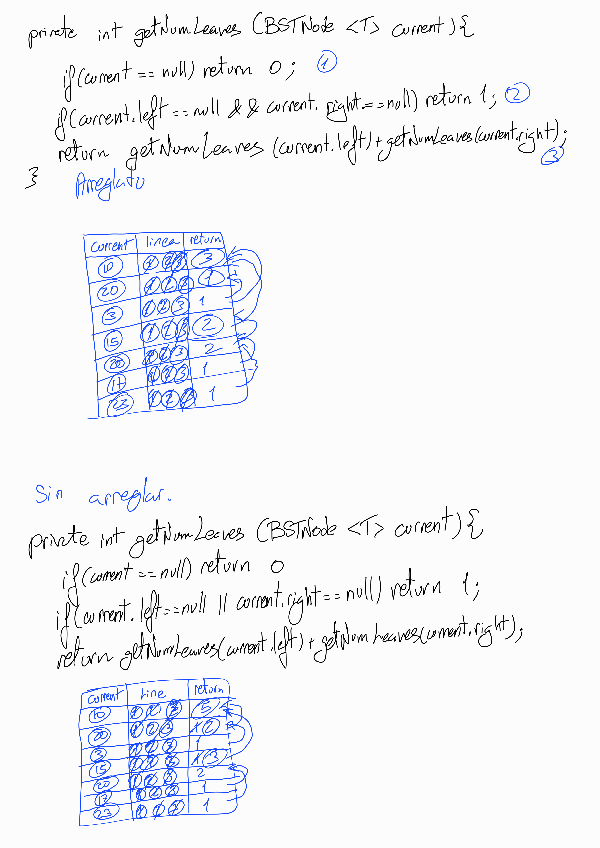 private int getNumLeaves (BSTNode <T> current){
if(current == null) return 0; ①
if(current.left == null && current.right == null) return 1; ②
return getNumLeaves (current.left)+getNumLeaves(current.right);
③
}
Arreglato
current linea return
10 1 2 3 3
20 1 2 3 1
3 1 2 3 1
15 1 2 3 2
20 1 2 3 2
17 1 2 3 1
23 1 2 3 1
Sin arreglar.
private int getNumLeaves (BSTNode <T> current){
if(current == null) return 0
if(current.left==null || current.right==null) return 1;
return getNumLeaves(current.left)+getNumLeaves(current.right);
current Line return
10 1 2 3 5
20 1 2 3 2
3 1 2 3 1
15 1 2 3 3
20 1 2 3 2
17 1 2 3 1
23 1 2 3 1